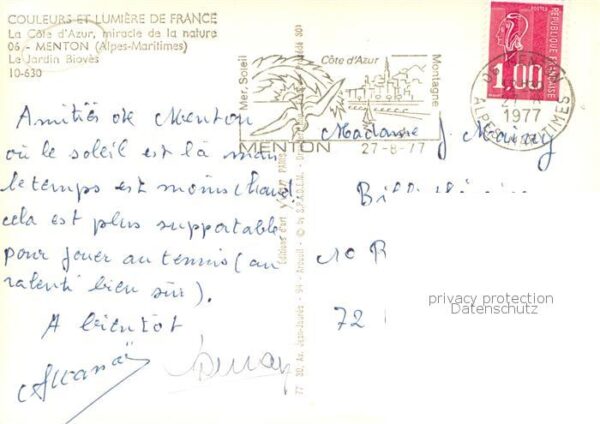 COULEURS ET LUMIÈRE DE FRANCE
La Côte d'Azur, miracle de la nature
06 - MENTON (Alpes-Maritimes)
Le Jardin Biovès
10-630
Amitiés de Menton
où le soleil est là mais
le temps est moins chaud
cela est plus supportable
pour jouer au tennis (au
ralenti bien sûr).
A bientôt
Mer, Soleil
Côte d'Azur
Montagne
MENTON
27-8-77
POSTES
RÉPUBLIQUE FRANÇAISE
1,00
MENTON
1977
ALPES MARITIMES
Madame J.
10 R
72
privacy protection
Datenschutz
77 - 20, Av. Jean-Jaurès - 94 - Arcueil - © by S.P.A.D.E.M.
Editions d'art YVON PARIS